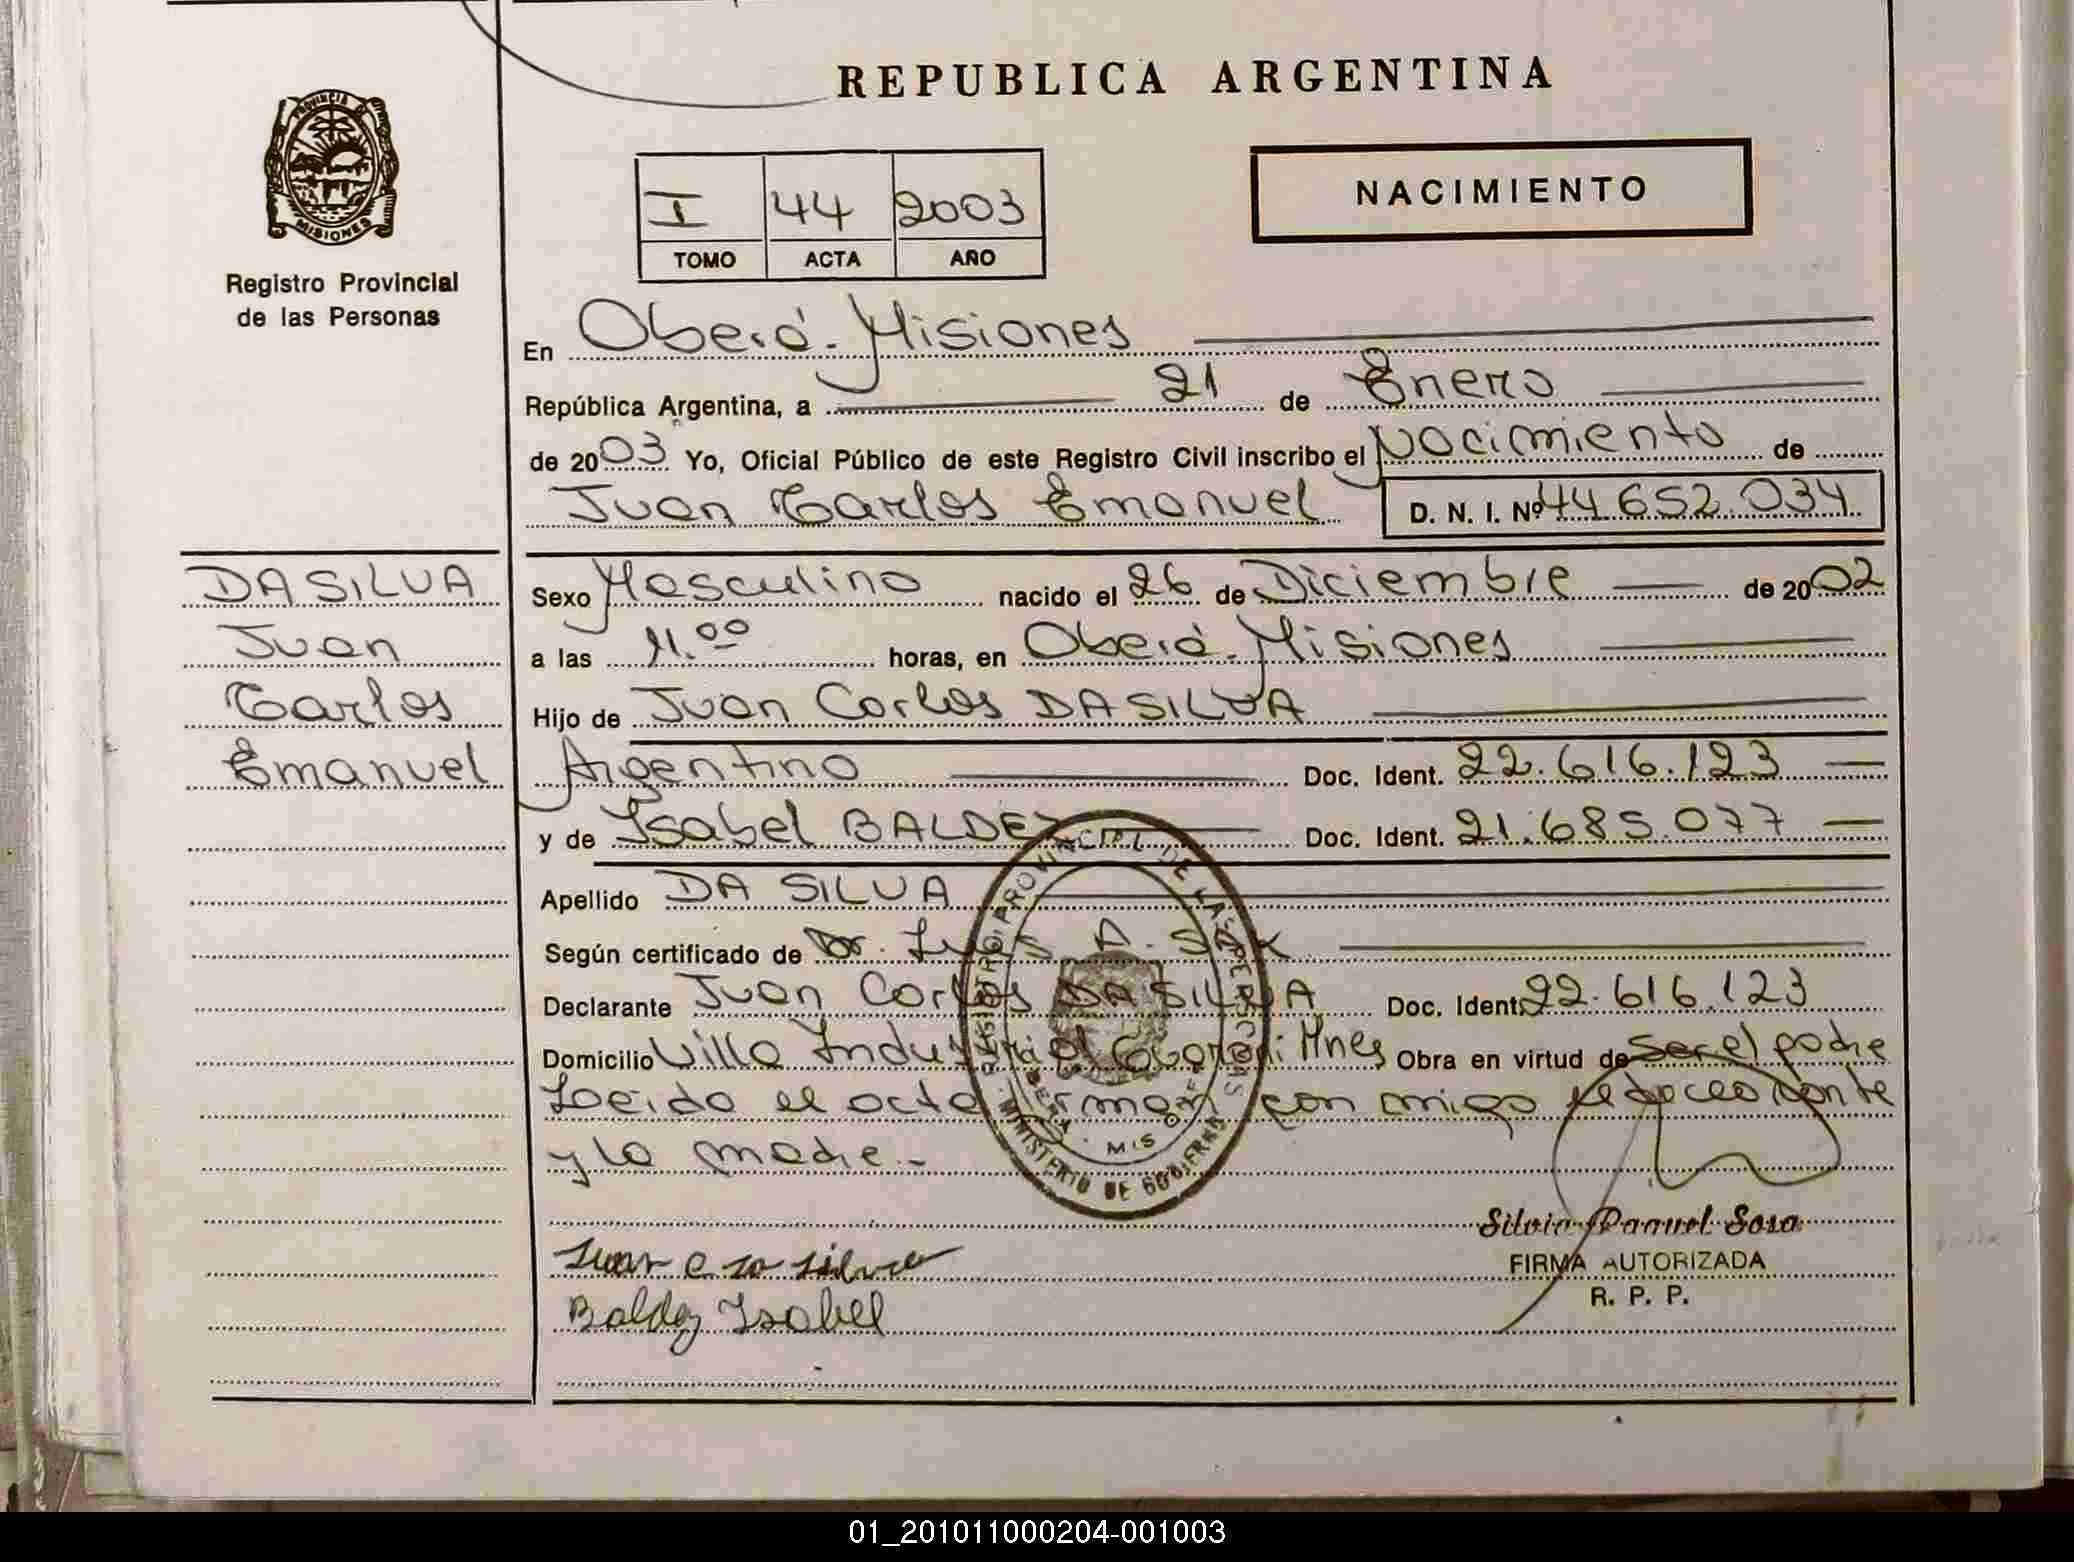 REPUBLICA ARGENTINA
PROVINCIA DE
MISIONES
Registro Provincial
de las Personas
I 44 2003
TOMO ACTA AÑO
NACIMIENTO
En Oberá. Misiones
República Argentina, a 21 de Enero
de 2003 Yo, Oficial Público de este Registro Civil inscribo el Nacimiento de
Juan Carlos Emanuel D. N. I. Nº 44.652.034
DA SILVA
Juan
Carlos
Emanuel
Sexo Masculino nacido el 26 de Diciembre de 2002
a las 11.00 horas, en Oberá. Misiones
Hijo de Juan Carlos DA SILVA
Argentino Doc. Ident. 22.616.123
y de Isabel BALDEZ Doc. Ident. 21.685.077
Apellido DA SILVA
Según certificado de Dr. A.
Declarante Juan Carlos DA SILVA Doc. Ident. 22.616.123
Domicilio Villa Industrial Guaraní Mnes Obra en virtud de ser el padre
Leido el acta firman con migo el declarante
y la madre.-
REGISTRO PROVINCIAL DE LAS PERSONAS
MINISTERIO DE GOBIERNO
Juan C Da Silva
Baldez Isabel
Silvia Raquel Sosa
FIRMA AUTORIZADA
R. P. P.
01_201011000204-001003